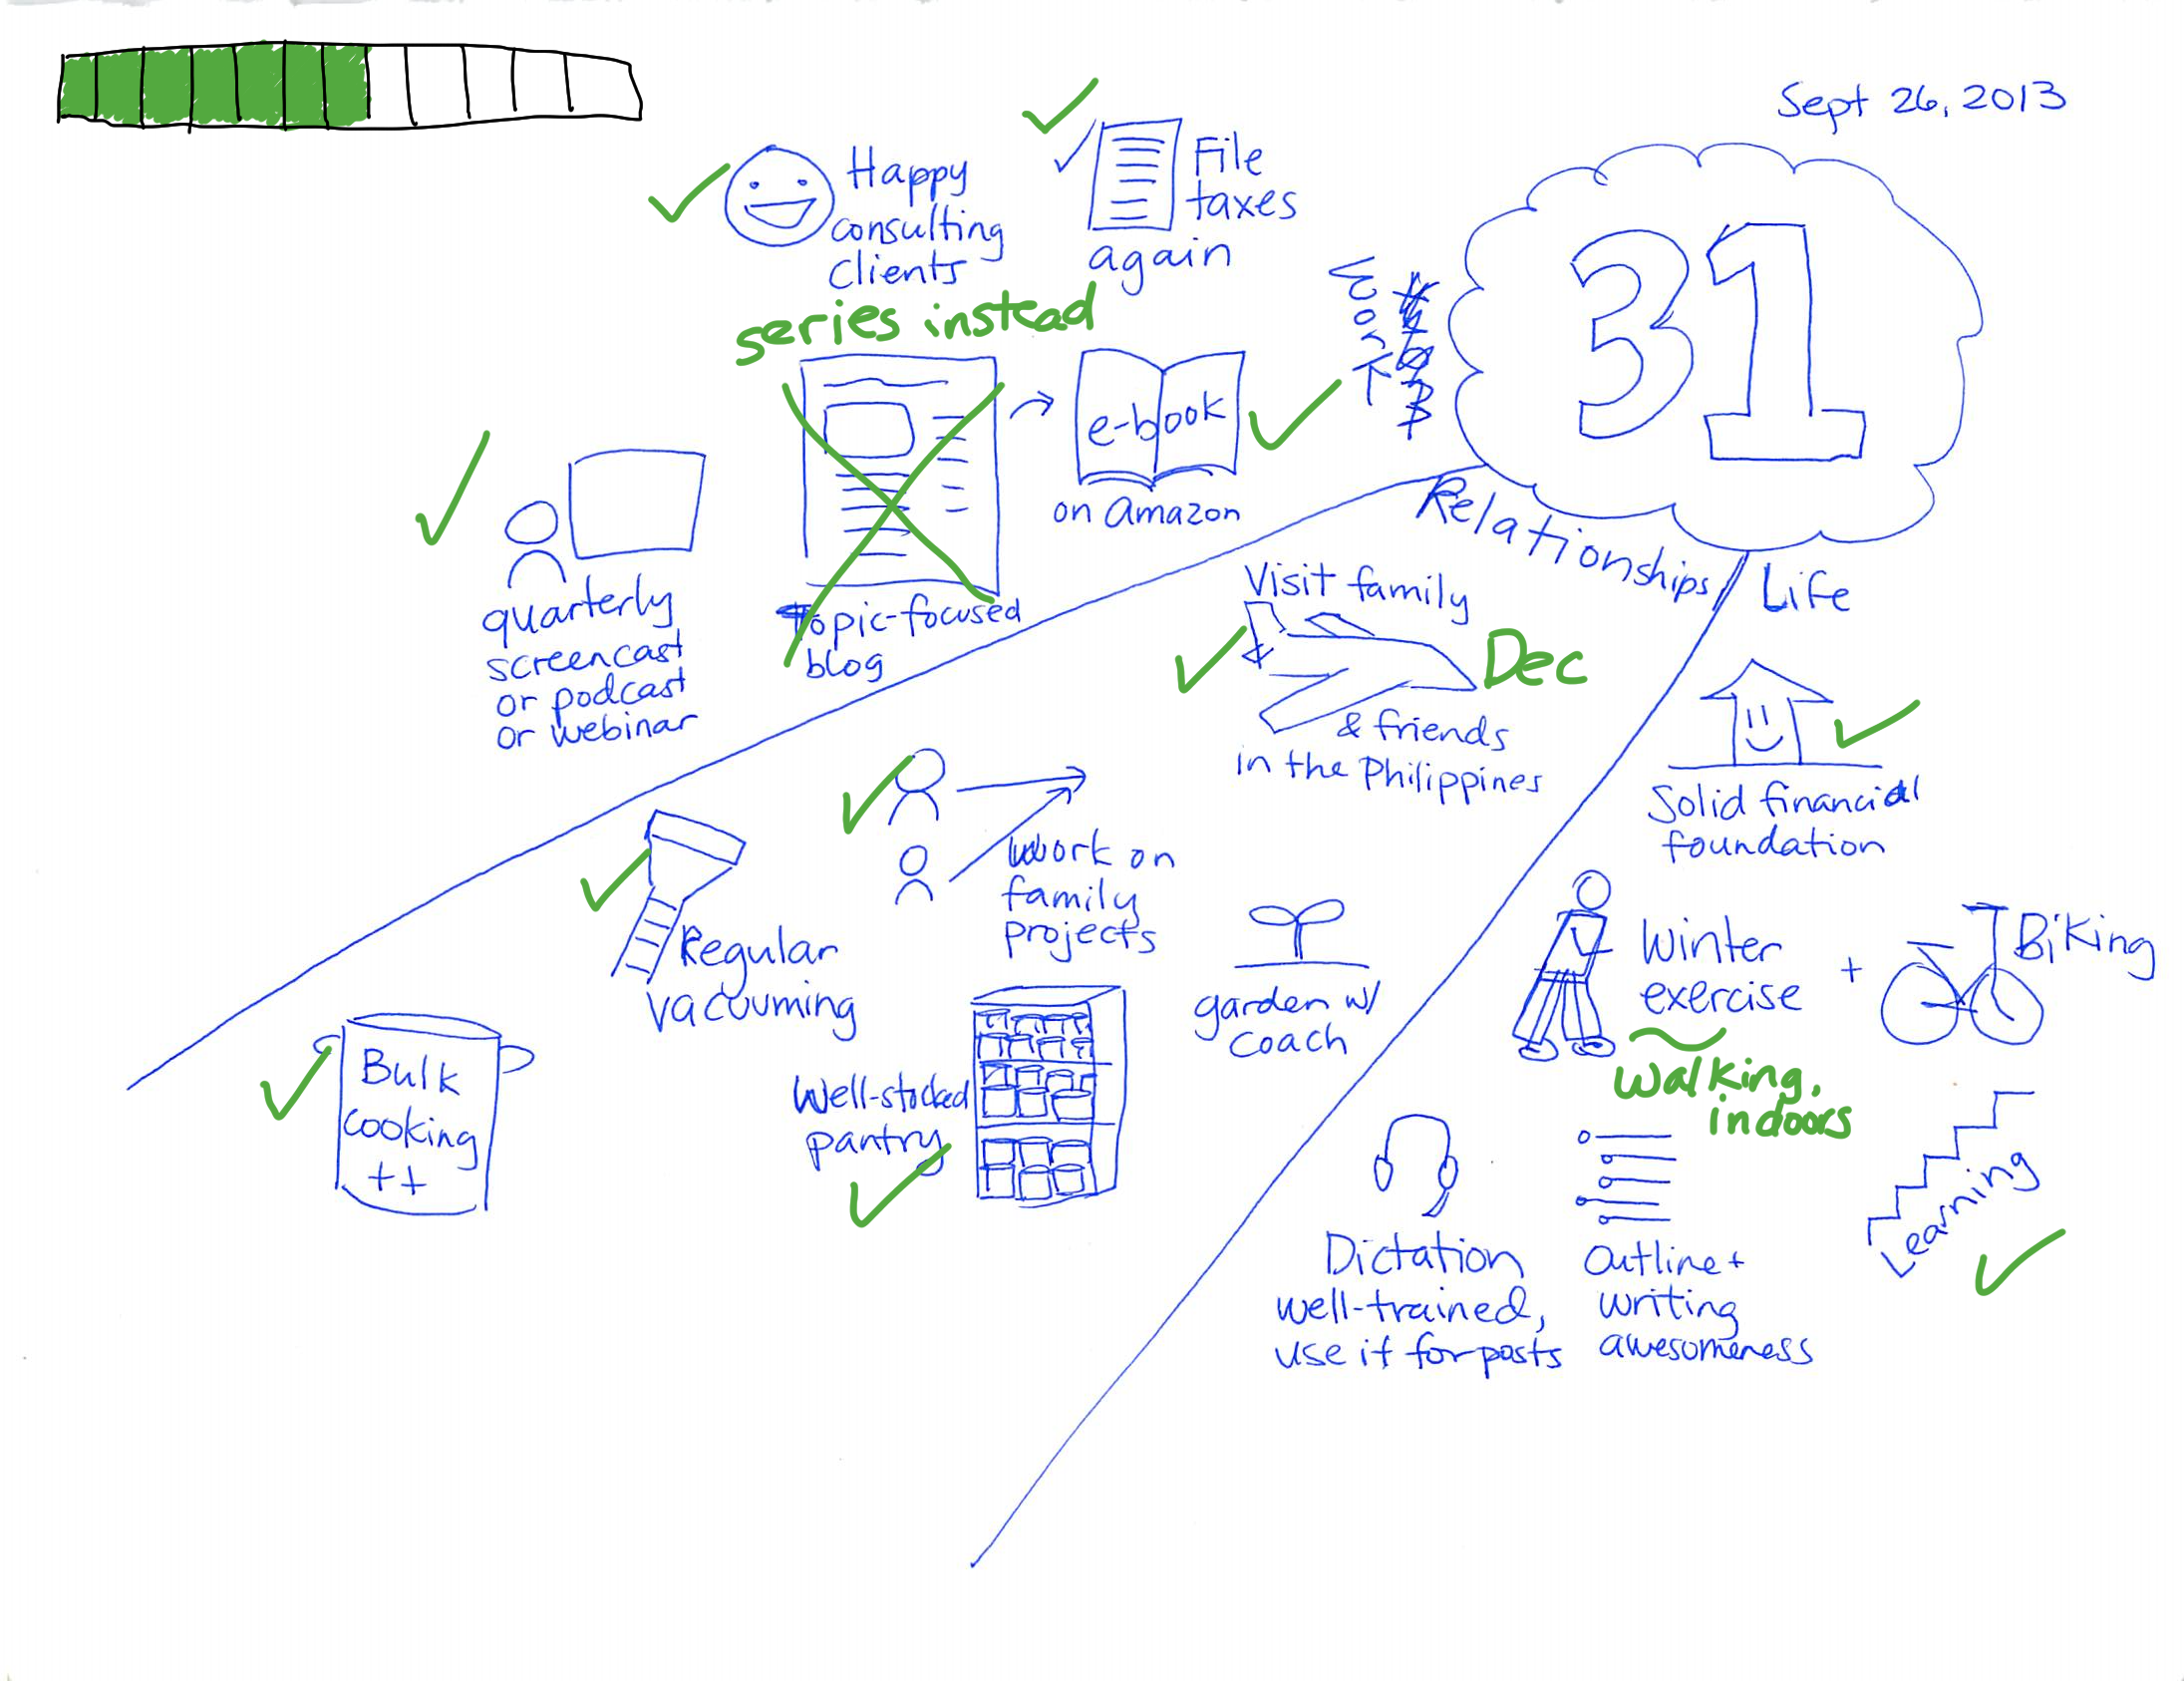 Sept 26, 2013
31
Happy
consulting
clients
File
taxes
again
series instead
e-book
on Amazon
quarterly
screencast
or podcast
or webinar
Topic-focused
blog
Relationships
Life
Visit family
Dec
& friends
in the Philippines
Work on
family
projects
Regular
vacuuming
Bulk
cooking
++
Well-stocked
pantry
garden w/
coach
Solid financial
foundation
Winter
exercise
+
Biking
walking,
indoors
Dictation
well-trained,
use it for posts
Outline +
writing
awesomeness
Learning